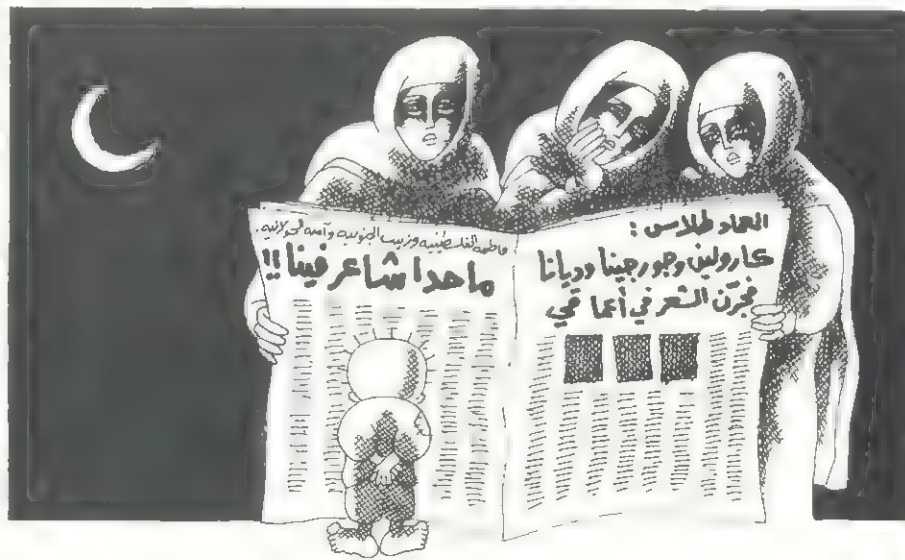 العماد طلاس :
كارولين وجورجينا وديانا
فجرّن الشعر في أعماقي
فاطمه الفلسطينيه وزينب الجنوبيه وآمنه الجولانيه.
ماحدا شاعر فينا !!